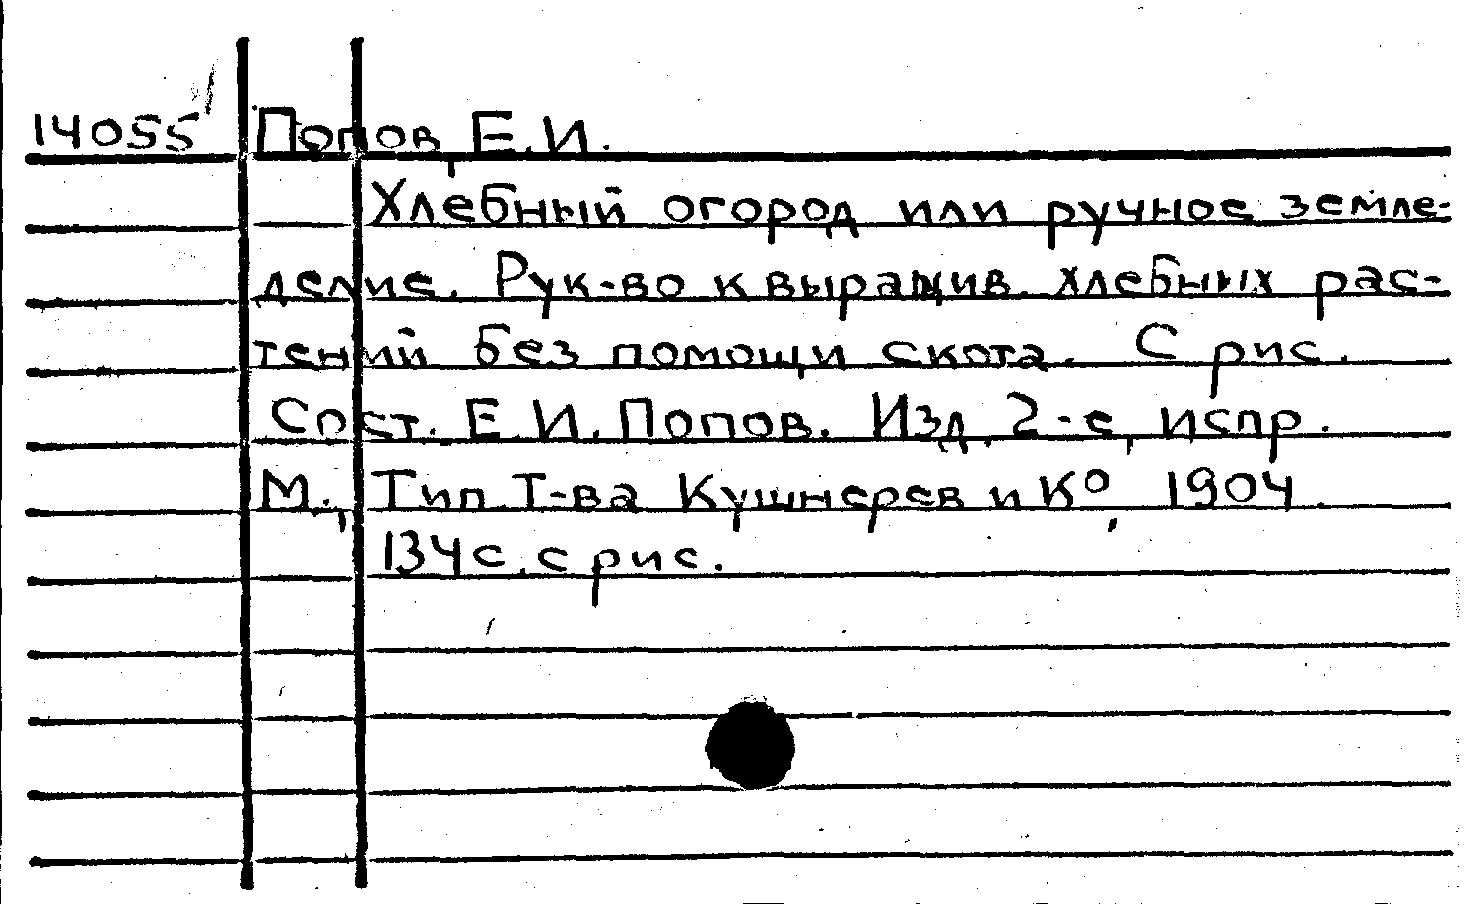 14055 Попов, Е.И.
Хлебный огород или ручное земле-
делие. Рук-во к выращив. хлебных рас-
тений без помощи скота. С рис.
Сост. Е.И. Попов. Изд. 2-е, испр.
М., Тип. Т-ва Кушнерев и К⁰, 1904.
134 с. с рис.